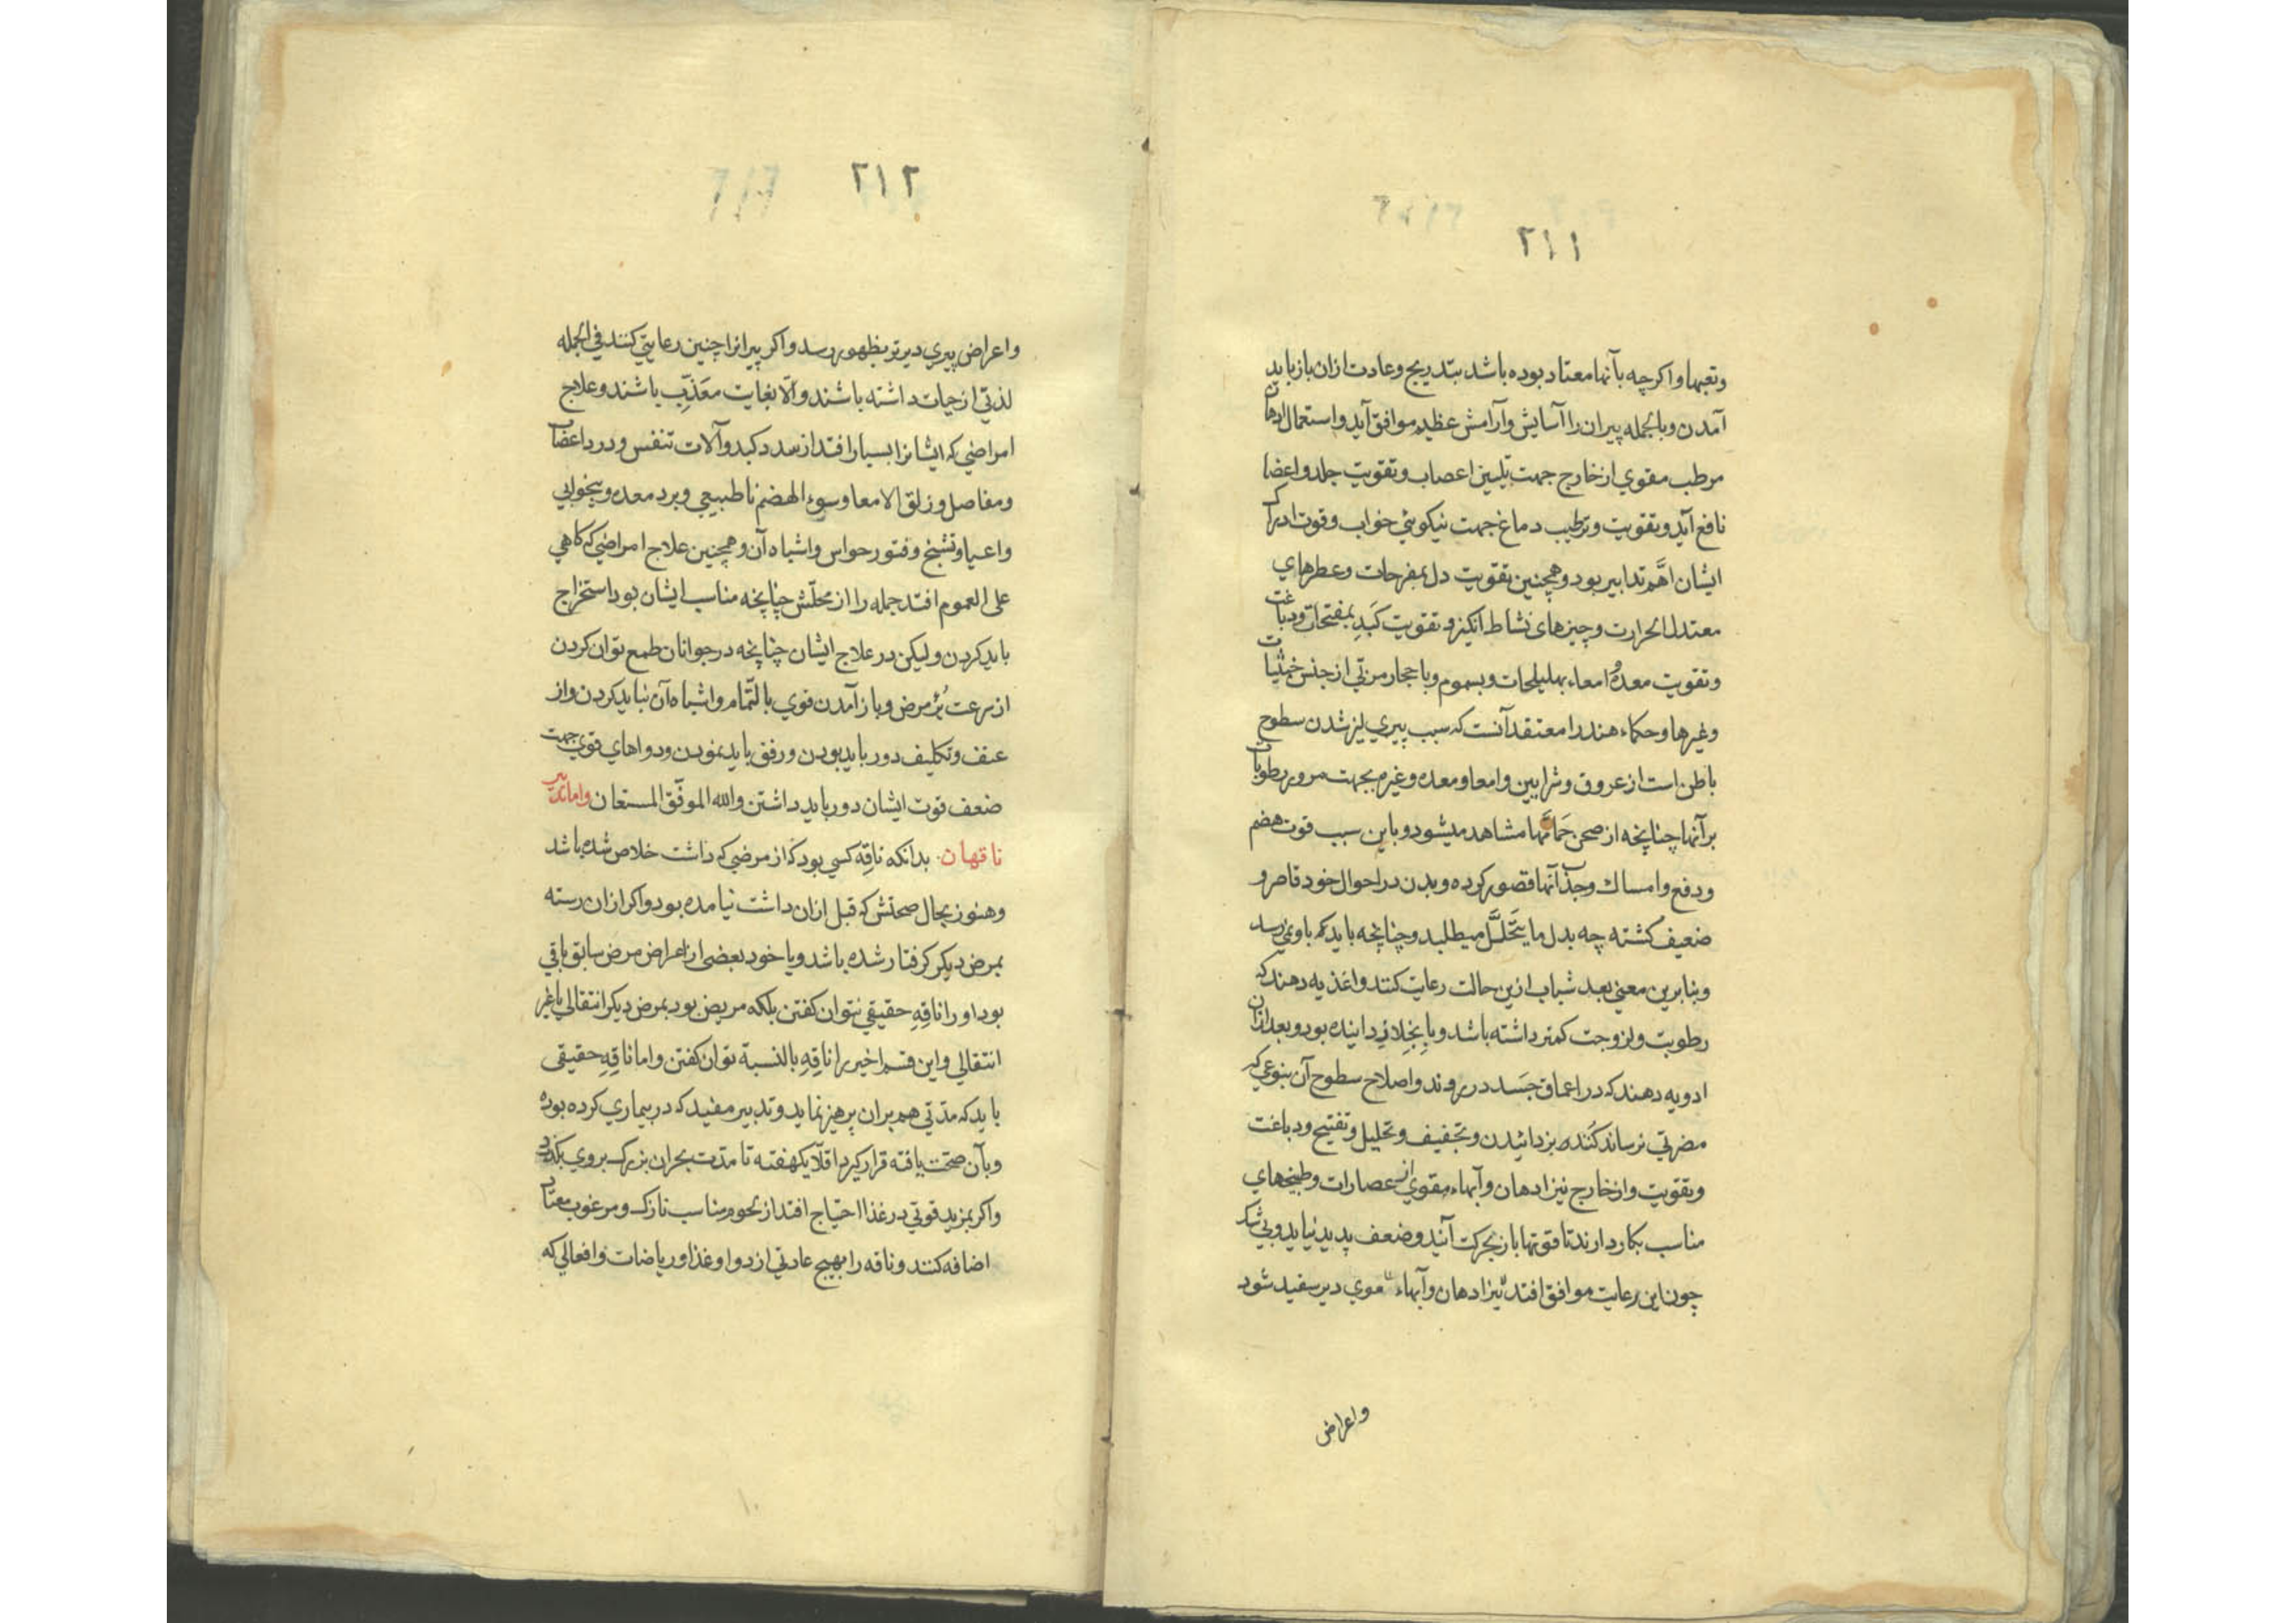 ٢١١
وتعبها واكرچه بآنها معتاد بوده باشد بتدريج وعادت ازان باز بايد
آمدن وبالجمله پيران را آسايش وآرامش عظيم موافق آيد واستعمال ادهان
مرطب مقوي از خارج جهت تليين اعصاب وتقويت جلد واعضا
نافع آيد وتقويت وترطيب دماغ جهت نيكوئي خواب وقوت ادراك
ايشان اهَّم تدابير بود وهمچنين تقويت دل بمفرحات وعطرهاي
معتدل الحرارت وچيزهاي نشاط انكيز وتقويت كَبدِ بمفتحات ودباغت
وتقويت معده و امعاء بهليلجات وبسموم وباحجار مربّي از جنس خبثيات
وغيرها وحكماء هند را معتقد آنست كه سبب پيري ليز شدن سطوح
باطن است از عروق وشرايين وامعا ومعده وغيره بجهت مرور رطوبات
برآنها چنانچه از صحن حَمامها مشاهد ميشود وباين سبب قوت هضم
ودفع وامساك وجذب آنها قصور كرده وبدن در احوال خود قاصر و
ضعيف كشته چه بدل ما يتَحَلَّل ميطلبد وچنانچه بايد كم باو مي رسد
وبنابرين معني بعد شباب ازين حالت رعايت كنند واغذيه دهند كه
رطوبت ولزوجت كمتر داشته باشد وبا بخِلافِ داينده بود وبعد ازان
ادويه دهند كه در اعماق جَسد در روند واصلاح سطوح آن بنوعي كه
مضرتي نرساند كَننده بزدائيدن وتجفيف وتحليل وتفتيح ودباغت
وتقويت واز خارج نيز ادهان وآبهاء مقوي از عصارات وطبيخهاي
مناسب بكار دارند تا قوتها باز بحركت آيند وضعف پديد نيايد وبي شك
چون اين رعايت موافق افتد نيز ادهان وآبهاء موي دير سفيد شود
واعراض
٢١٢
واعراض پيري ديرتر بظهور رسد واكر پيرانرا چنين رعايتي كنند في الجمله
لذتي از حيات داشته باشند والّا بغايت معَذّب باشند وعلاج
امراضي كه ايشانرا بسيار افتد از سدد كبد وآلات تنفس ودرد اعضا
ومفاصل وزلق الامعا وسوء الهضم ناطبيعي وبرد معده وبيخوابي
واعيا وتشنج وفتور حواس واشباه آن وهمچنين علاج امراضي كه كاهي
علي العموم افتد جمله را از محلّش چنانچه مناسب ايشان بود استخراج
بايد كردن وليكن در علاج ايشان چنانچه در جوانان طمع توان كردن
از سرعت بُرْ مرض وباز آمدن قوي بالتّمام واشباه آن نبايد كردن واز
عنف وتكليف دور بايد بودن ورفق بايد نمودن ودواهاي قوي جهت
ضعف قوت ايشان دور بايد داشتن والله الموفّق المستعان واما تدبير
ناقهان بدانكه ناقِه كسي بود كه از مرضي كه داشت خلاص شده باشد
وهنوز بحال صحتش كه قبل ازان داشت نيامده بود واكر ازان رسته
بمرض ديكر كرفتار شده باشد ويا خود بعضي از اعراض مرض سابق باقي
بود او را ناقِهِ حقيقي نتوان كفتن بلكه مريض بود بمرض ديكر انتقالي يا غير
انتقالي واين قسم اخير را ناقِهِ بالنسبة توان كفتن واما ناقِهِ حقيقي
بايد كه مدتي هم بران پرهيز نمايد وتدبير مفيد كه در بيماري كرده بوده
وبآن صحّت يافته قرار كيرد اقلّا يكهفته تا مدت بحران بزرك بروي بكذرد
واكر بمزيد قوتي در غذا احتياج افتد از لحوم مناسب نازك ومرغوب معتاد
اضافه كنند وناقه را بهيچ عادتي از دوا وغذا ورياضات وافعالي كه